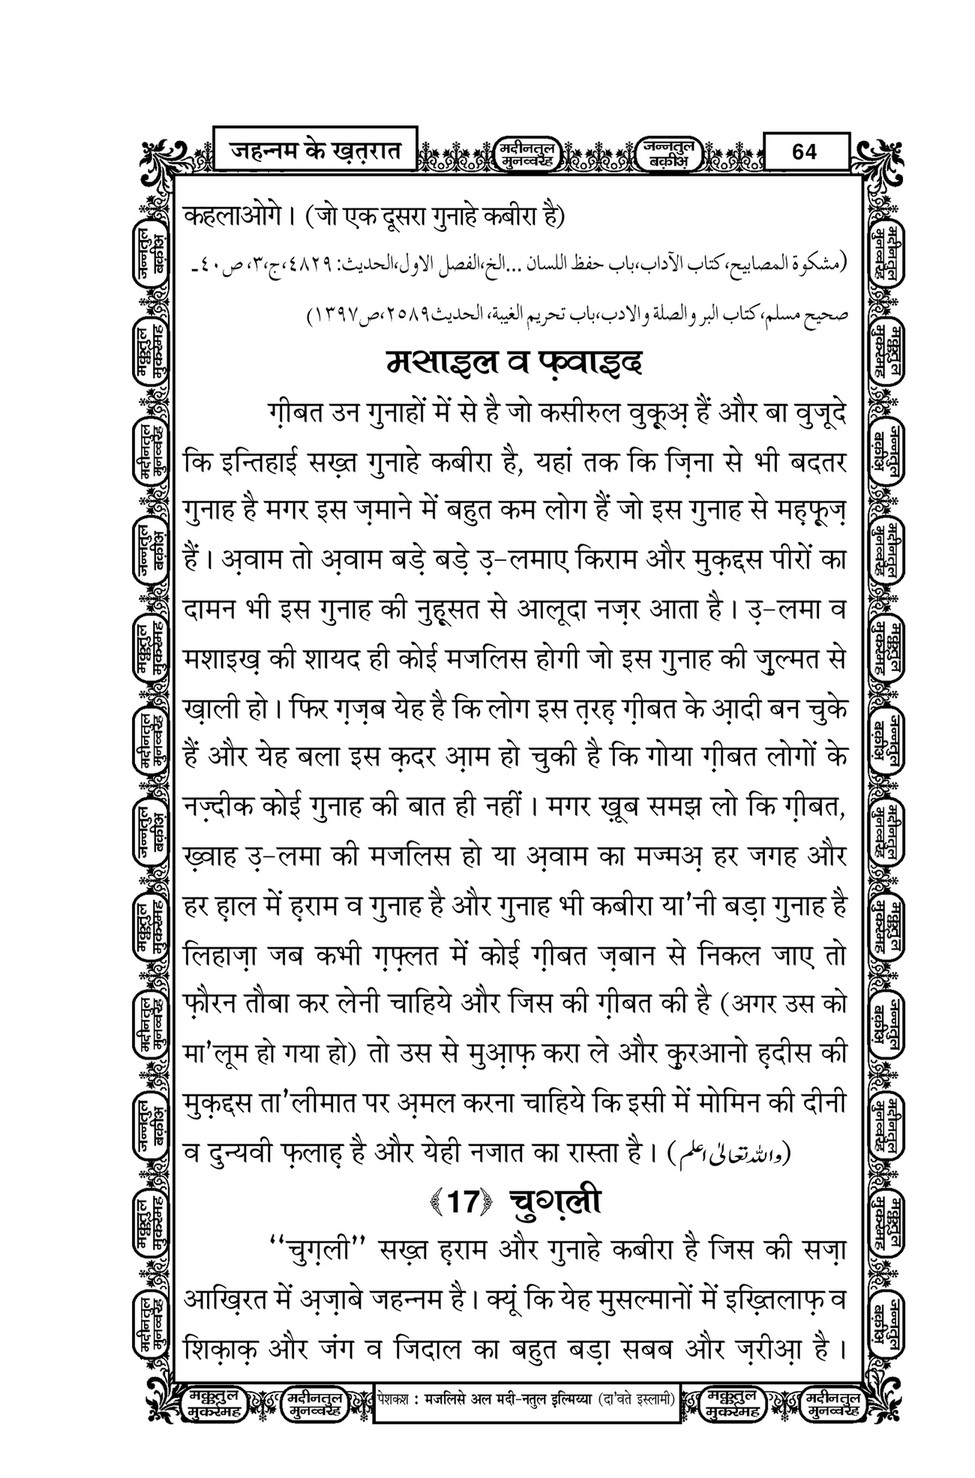 जहन्नम के ख़त़रात
मदीनतुल मुनव्वरह
जन्नतुल बक़ीअ़
64
कहलाओगे। (जो एक दूसरा गुनाहे कबीरा है)
(مشكوة المصابيح،كتاب الآداب،باب حفظ اللسان ...الخ،الفصل الاول،الحديث: ٤٨٢٩،ج،٣،ص٤٠ـ
صحيح مسلم،كتاب البر والصلة والادب،باب تحريم الغيبة، الحديث٢٥٨٩،ص١٣٩٧)
मसाइल व फ़वाइद
ग़ीबत उन गुनाहों में से है जो कसीरुल वुक़ूअ़ हैं और बा वुजूदे
कि इन्तिहाई सख़्त गुनाहे कबीरा है, यहां तक कि ज़िना से भी बदतर
गुनाह है मगर इस ज़माने में बहुत कम लोग हैं जो इस गुनाह से मह़फ़ूज़
हैं। अ़वाम तो अ़वाम बड़े बड़े उ़-लमाए किराम और मुक़द्दस पीरों का
दामन भी इस गुनाह की नुह़ूसत से आलूदा नज़र आता है। उ़-लमा व
मशाइख़ की शायद ही कोई मजलिस होगी जो इस गुनाह की ज़ुल्मत से
ख़ाली हो। फिर ग़ज़ब येह है कि लोग इस त़रह़ ग़ीबत के आ़दी बन चुके
हैं और येह बला इस क़दर आ़म हो चुकी है कि गोया ग़ीबत लोगों के
नज़्दीक कोई गुनाह की बात ही नहीं। मगर ख़ूब समझ लो कि ग़ीबत,
ख़्वाह उ़-लमा की मजलिस हो या अ़वाम का मज्मअ़ हर जगह और
हर ह़ाल में ह़राम व गुनाह है और गुनाह भी कबीरा या'नी बड़ा गुनाह है
लिहाज़ा जब कभी ग़फ़्लत में कोई ग़ीबत ज़बान से निकल जाए तो
फ़ौरन तौबा कर लेनी चाहिये और जिस की ग़ीबत की है (अगर उस को
मा'लूम हो गया हो) तो उस से मुआ़फ़ करा ले और क़ुरआनो ह़दीस की
मुक़द्दस ता'लीमात पर अ़मल करना चाहिये कि इसी में मोमिन की दीनी
व दुन्यवी फ़लाह़ है और येही नजात का रास्ता है। (واللہ تعالٰی اعلم)
﴾17﴿ चुग़ली
‘‘चुग़ली’’ सख़्त ह़राम और गुनाहे कबीरा है जिस की सज़ा
आख़िरत में अ़ज़ाबे जहन्नम है। क्यूं कि येह मुसल्मानों में इख़्तिलाफ़ व
शिक़ाक़ और जंग व जिदाल का बहुत बड़ा सबब और ज़रीआ़ है।
मक्कतुल मुकर्रमह
मदीनतुल मुनव्वरह
पेशकश : मजलिसे अल मदी-नतुल इल्मिय्या (दा'वते इस्लामी)
मक्कतुल मुकर्रमह
मदीनतुल मुनव्वरह